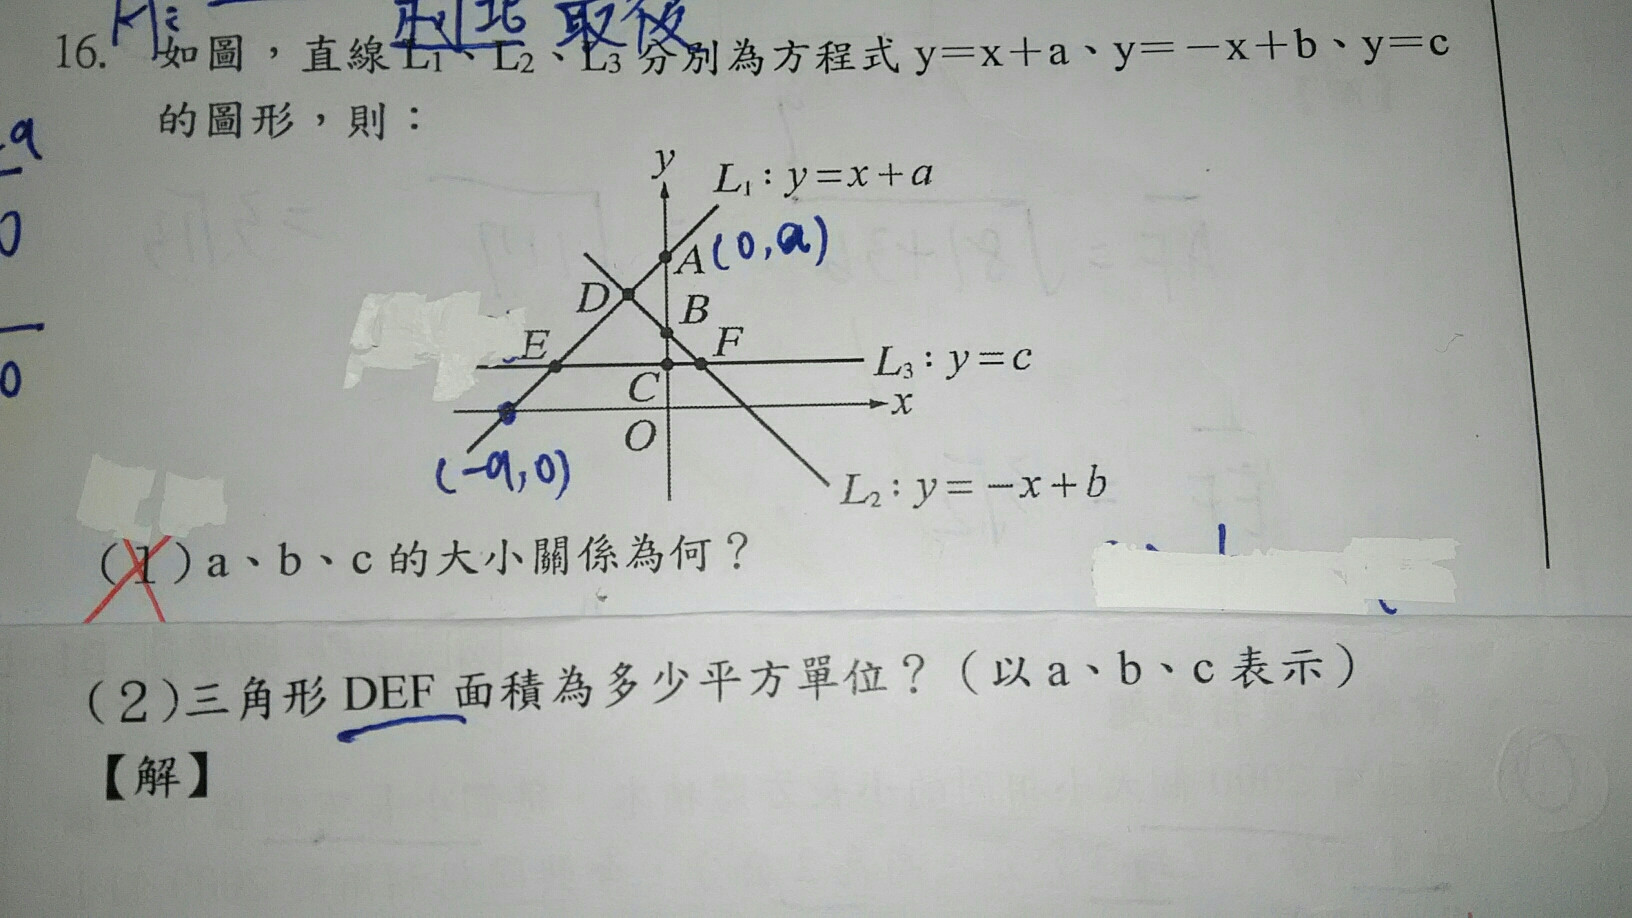 利北 最後
16. 如圖，直線 L₁、L₂、L₃ 分別為方程式 y=x+a、y=－x+b、y=c
的圖形，則：
y
L₁：y=x+a
A (0,a)
D
B
E
F
L₃：y=c
C
x
O
(-a,0)
L₂：y=－x+b
(1) a、b、c 的大小關係為何？
(2)三角形 DEF 面積為多少平方單位？（以 a、b、c 表示）
【解】